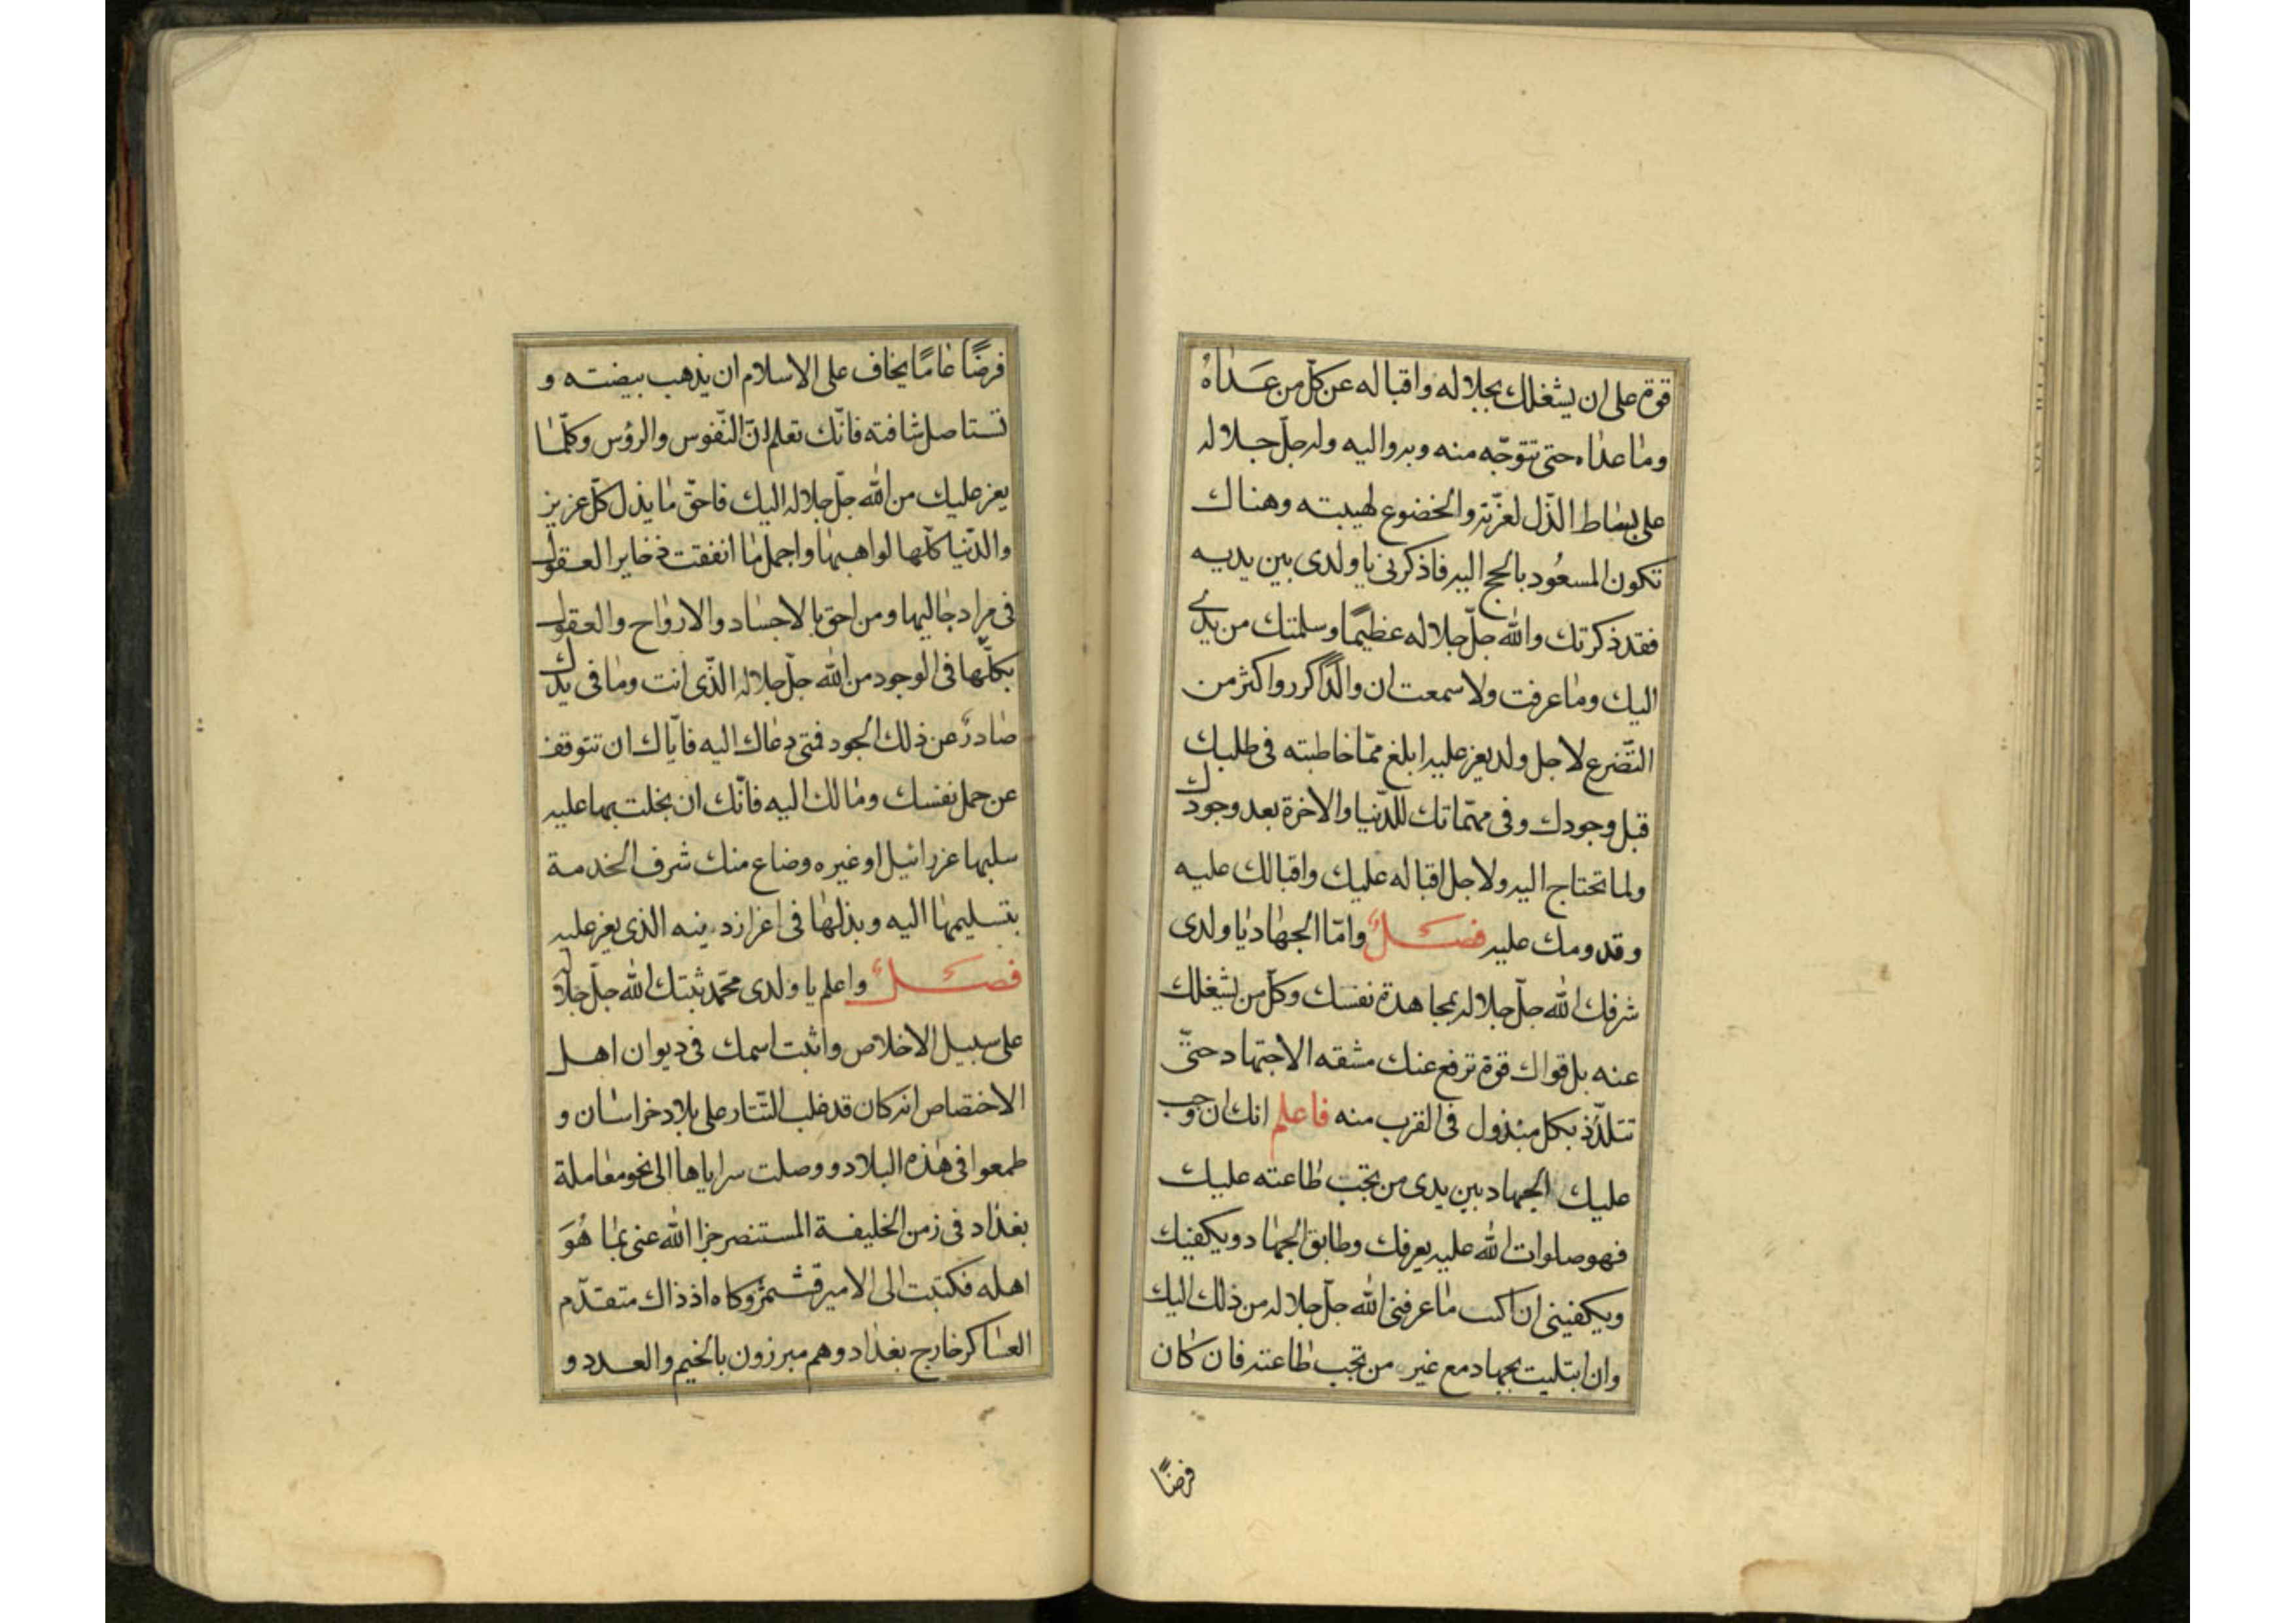 قوة على ان يشغلك بجلاله واقباله عن كلّ من عَداهُ
وما عداه حتى تتوجّه منه وبه واليه وله جلّ جلاله
على بساط الذّل لعزّته والخضوع لهيبته وهناك
تكون المسعُود بالحج اليه فاذكرنى يا ولدى بين يديه
فقد ذكرتك والله جلّ جلاله عظيمًا وسلمتك من يدى
اليك وما عرفت ولا سمعت ان والدًا كرر واكثر من
التّضرع لاجل ولد يعز عليه ابلغ ممّا خاطبته فى طلبك
قبل وجودك وفى مهمّاتك للدّنيا والاخرة بعد وجودك
ولما تحتاج اليه ولاجل اقباله عليك واقبالك عليه
وقدومك عليه فصل وامّا الجهاد يا ولدى
شرفك الله جلّ جلاله بمجاهدة نفسك وكلّ من يشغلك
عنه بل قواك قوة ترفع عنك مشقه الاجتهاد حتّى
تتلذّذ بكل مبذول فى القرب منه فاعلم انك ان وجب
عليك الجهاد بين يدى من تجب طاعته عليك
فهو صلوات الله عليه يعرفك وطابق الجهاد ويكفيك
ويكفينى ان اكت ما عرفنى الله جلّ جلاله من ذلك اليك
وان ابتليت بجهاد مع غير من تجب طاعته فان كان
فرضًا
فرضًا عامًا يخاف على الاسلام ان يذهب بيضته و
تستاصل شافته فانّك تعلم انّ النّفوس والرؤس وكلّما
يعز عليك من الله جلّ جلاله اليك فاحقّ ما يذل كلّ عزيز
والدّنيا كلّها لواهبها واجمل ما انفقت ذخاير العقول
فى مراد جالبها ومن احق بالاجساد والارواح والعقول
بكلّها فى الوجود من الله جلّ جلاله الّذى انت وما فى يدك
صادرٌ عن ذلك الجود فمتى دعاك اليه فايّاك ان تتوقف
عن حمل نفسك ومالك اليه فانّك ان بخلت بها عليه
سلبها عزرائيل او غيره وضاع منك شرف الخدمة
بتسليمها اليه وبذلها فى اعزاز دينه الذى يعز عليه
فصل واعلم يا ولدى محمّد ثبتك الله جلّ جلاله
على سبيل الاخلاص واثبت اسمك فى ديوان اهل
الاختصاص انه كان قد غلب التّتار على بلاد خراسان و
طمعوا فى هذه البلاد ووصلت سراياها الى نحو معاملة
بغداد فى زمن الخليفة المستنصر جزا الله عنى بما هُوَ
اهله فكتبت الى الامير قشمر وكاه اذ ذاك متقدّم
العساكر خارج بغداد وهم مبرزون بالخيم والعدد و